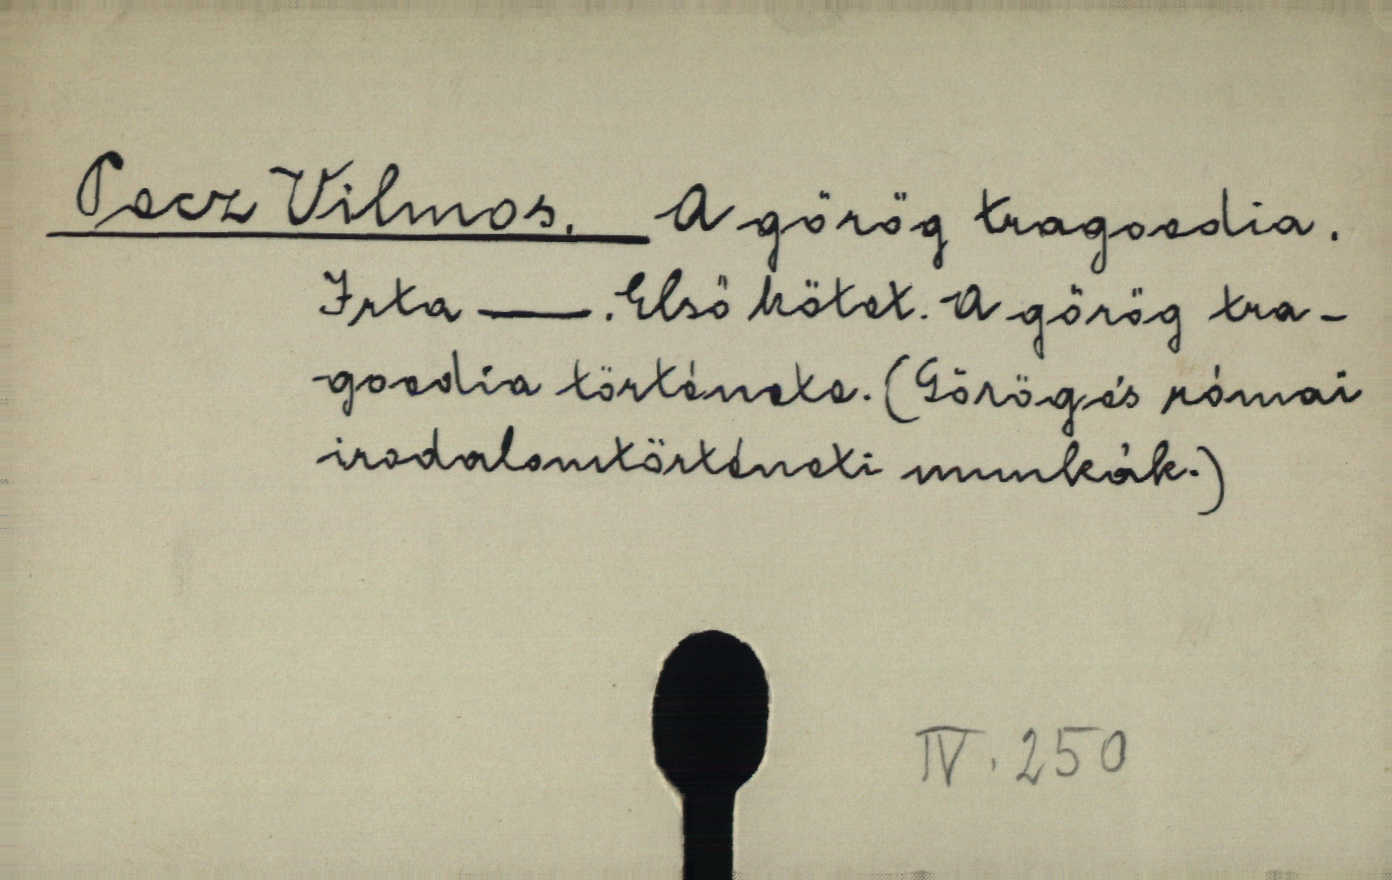 Pecz Vilmos. A görög tragoedia.
Irta —. Első kötet. A görög tra-
goedia története. (Görög és római
irodalomtörténeti munkák.)
IV. 250